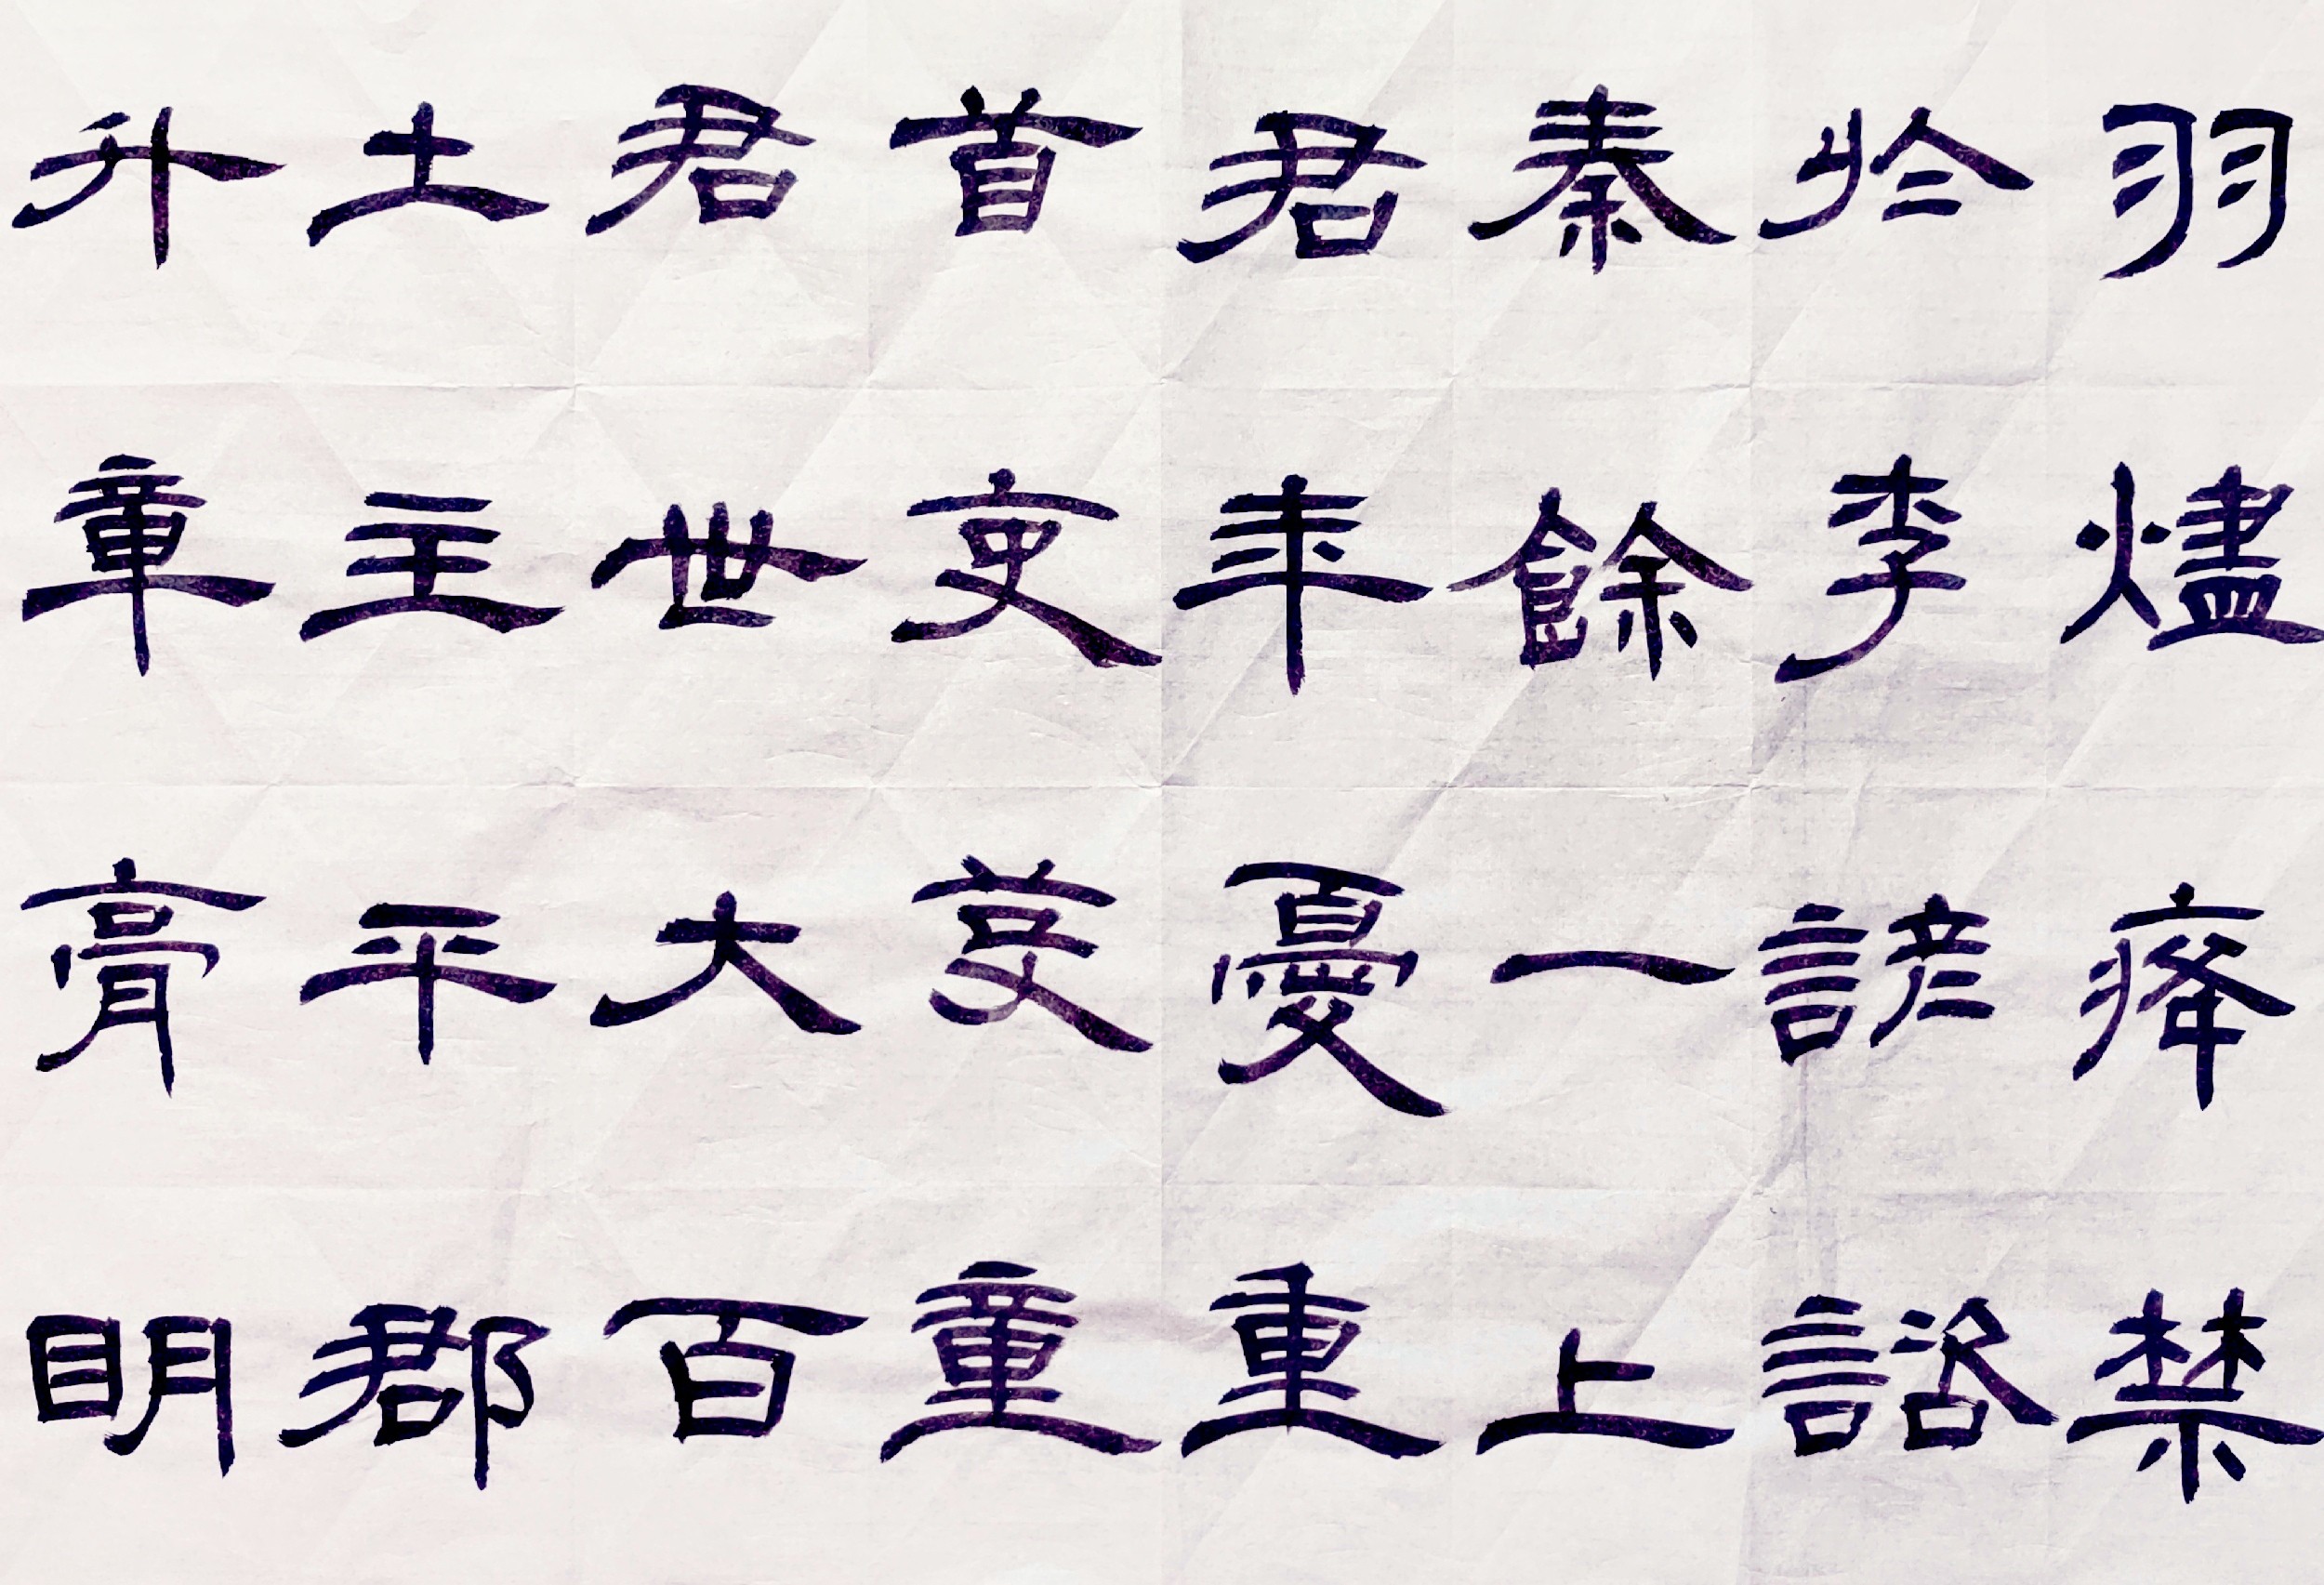 羽燼癃禁
於李諺諮
秦餘一上
君年憂重
首吏芟童
君世大百
土主平郡
升章膏明